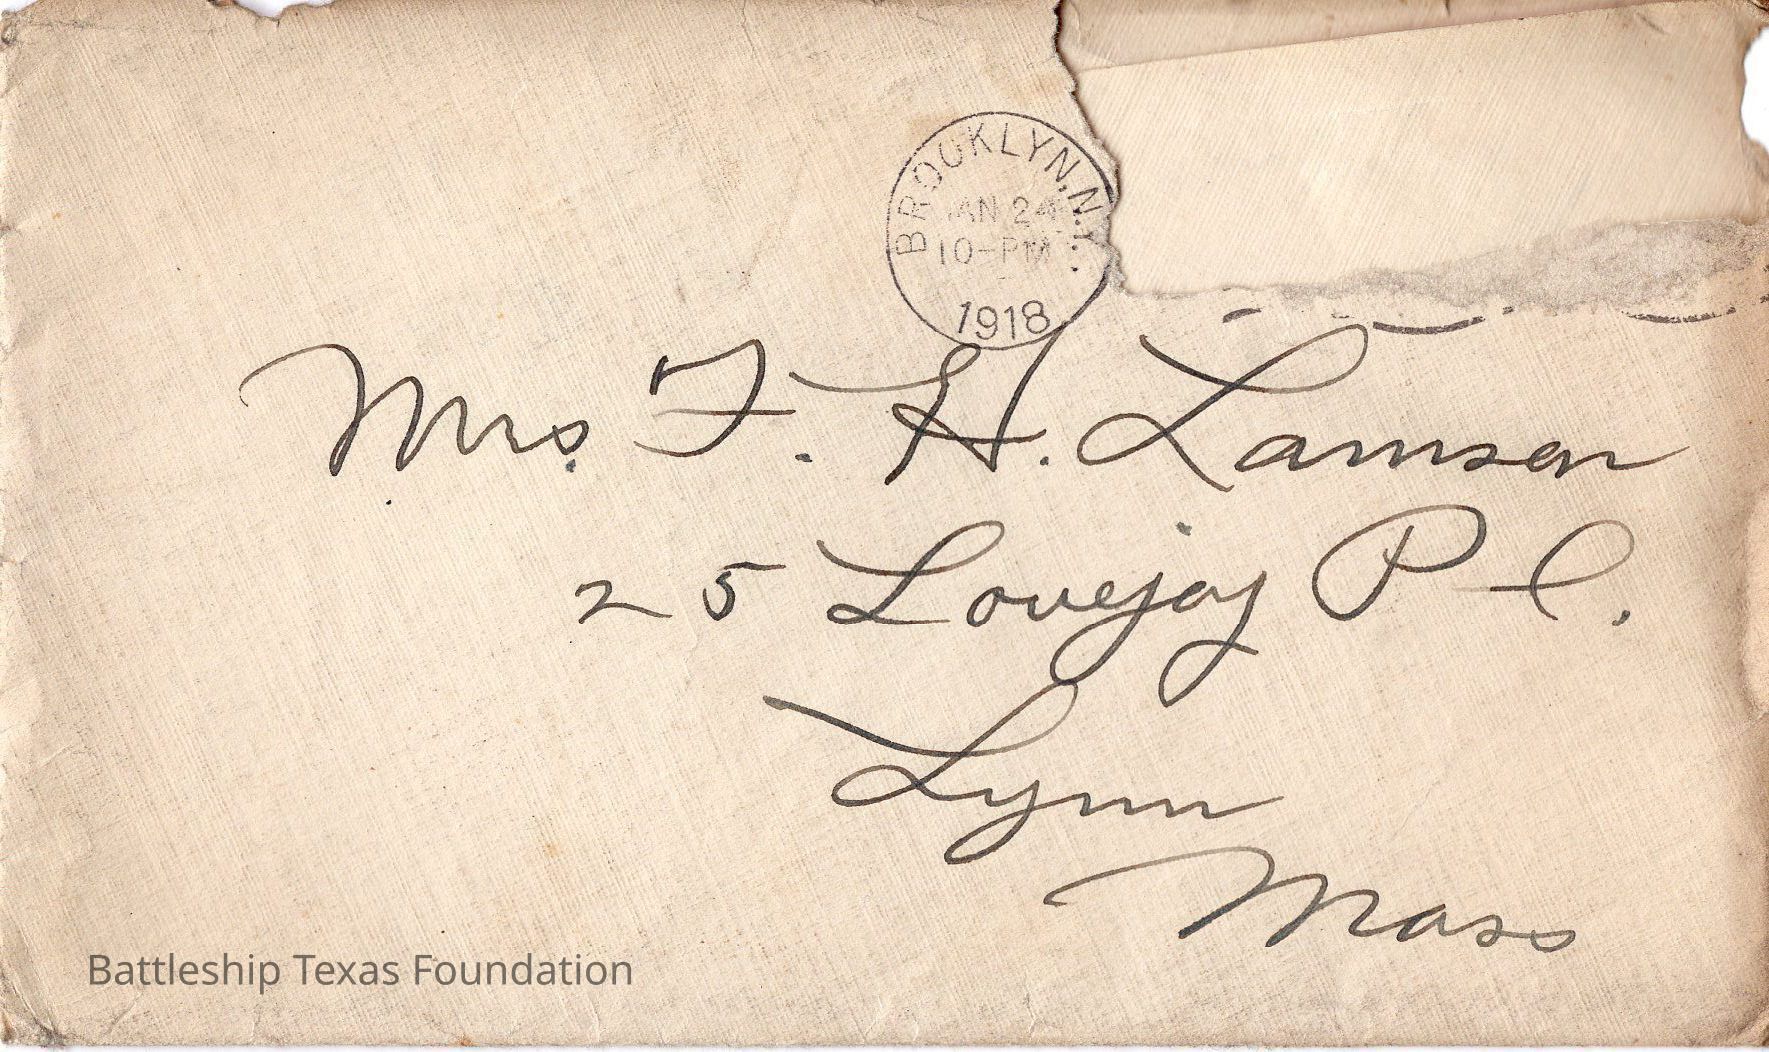 BROOKLYN. N.Y.
JAN 24
10-PM
1918
Mrs. F. H. Lamson
25 Lovejoy Pl.
Lynn
Mass
Battleship Texas Foundation